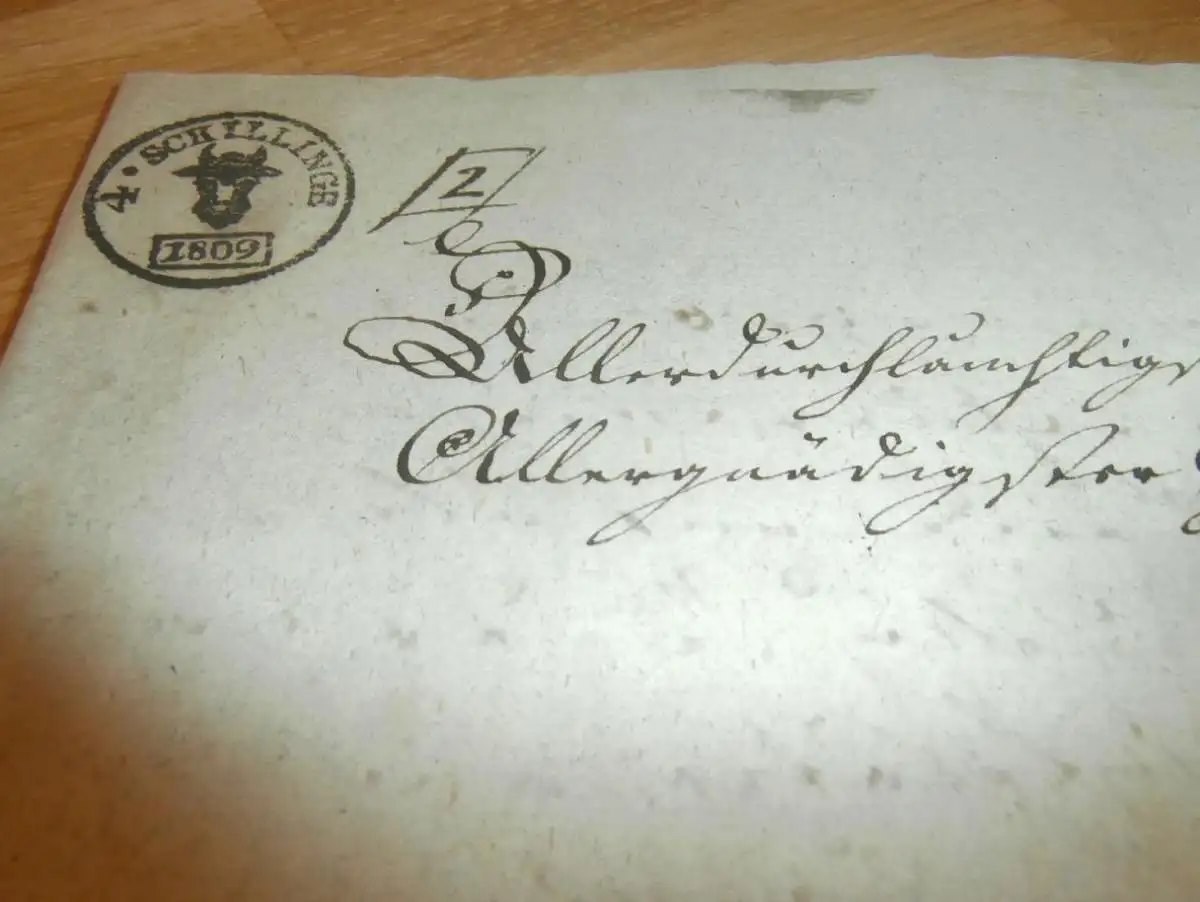 4 · SCHILLINGE
1809
2
Allerdurchläuchtigs
Allergnädigster